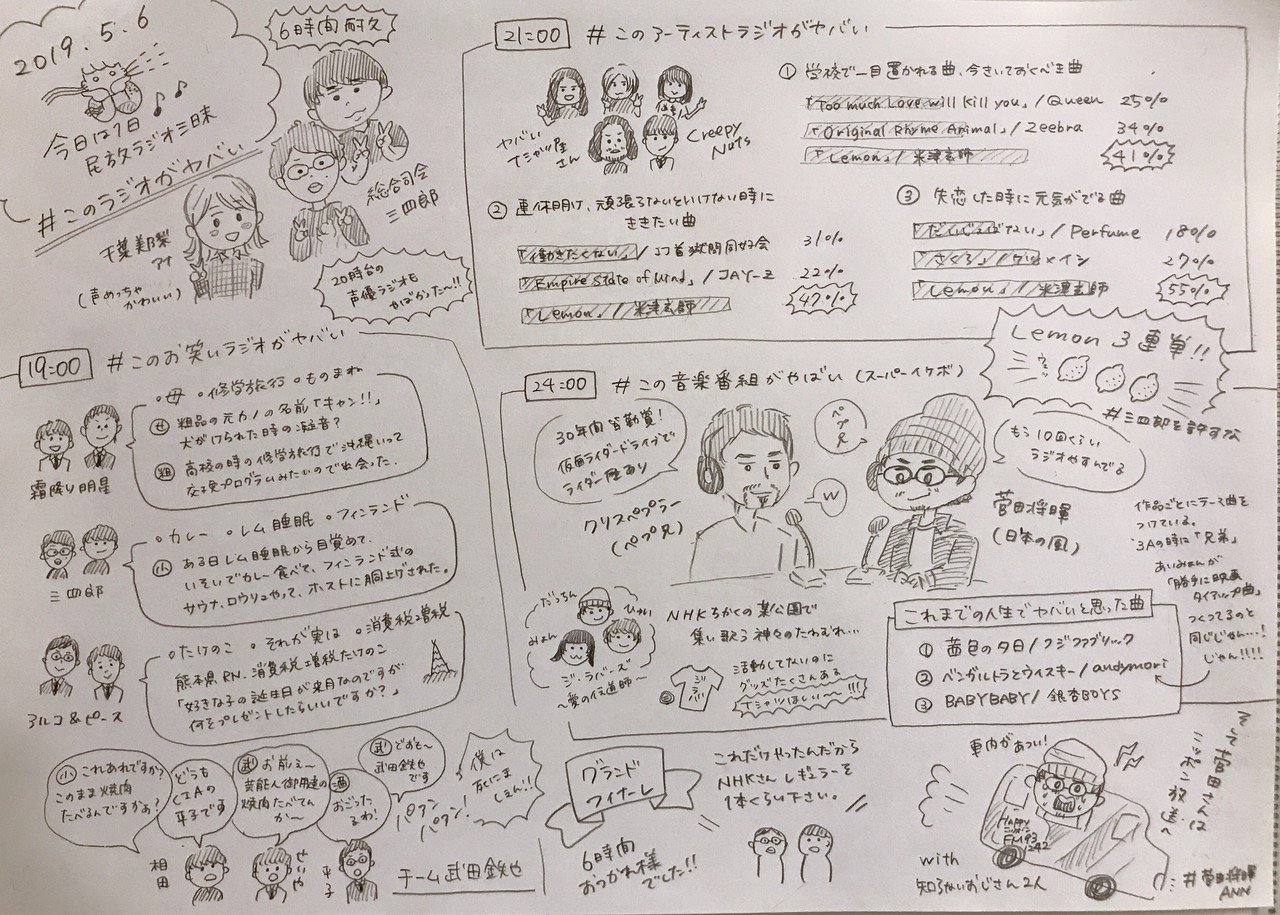 2019.5.6
今日は1日
民放ラジオ三昧
#このラジオがヤバい
6時間耐久
総合司会
三四郎
千葉美乃梨
アナ
(声めっちゃかわいい)
20時台の
声優ラジオも
やばかった〜!!
19:00
#このお笑いラジオがヤバい
霜降り明星
・母 ・修学旅行 ・ものまね
せ 粗品の元カノの名前「キャン!!」
犬がけられた時の
粗 高校の時の修学旅行で沖縄いって
みたいので出会った。
三四郎
・カレー ・レム睡眠 ・フィンランド
小 ある日レム睡眠から目覚めて、
いそいでカレー食べて、フィンランド式の
サウナ、ロウリュやって、ホストに胴上げされた。
アルコ&ピース
・たけのこ ・それが実は ・消費税増税
熊本県 RN. 消費税増税たけのこ
「好きな子の誕生日が来月なのですが
何をプレゼントしたらいいですか?」
小 これあれですか?
このまま焼肉
たべるんですかぁ?
どうも
CIAの
平子です
武 お前ぇ〜
芸能人御用達の
焼肉たべてんか〜
酒 おごったるわ!
武 どおも〜
武田鉄也
です
僕は
死にましぇん!!
パタン
パタン!
相田
せいや
平子
チーム武田鉄也
21:00
#このアーティストラジオがヤバい
ヤバい
Tシャツ屋
さん
Creepy
Nuts
① 学校で一目置かれる曲、今きいておくべき曲
「Too much Love will kill you」/ Queen 25%
「Original Rhyme Animal」/ Zeebra 34%
「Lemon」/ 米津玄師 41%
② 連休明け、頑張らないといけない時に
ききたい曲
「働きたくない」/ 打首獄門同好会 31%
「Empire State of Mind」/ JAY-Z 22%
「Lemon」/ 米津玄師 47%
③ 失恋した時に元気がでる曲
/ Perfume 18%
「さくら」/ ケツメイシ 27%
「Lemon」/ 米津玄師 55%
Lemon 3連単!!
#三四郎を許すな
24:00
#この音楽番組がやばい(スーパーイケボ)
30年間皆勤賞!
仮面ライダードライブで
ライダー歴あり
クリスペプラー
(ペプ兄)
ペプ兄
w
菅田将暉
(日本の風)
もう10回くらい
ラジオやすんでる
作品ごとにテーマ曲を
つけている。
3Aの時は「兄弟」
あいみょんが
「勝手に映画
タイアップ曲」
つくってるのと
同じじゃん…!
じゃん!!!!
だっちん
ひゅい
みょん
ジ・ラバーズ
〜愛の伝道師〜
NHKちかくの某公園で
集い歌う神々のたわむれ…
ジ
ラバ
活動してないのに
グッズたくさんある
Tシャツほしい〜!!!
これまでの人生でヤバいと思った曲
① 茜色の夕日 / フジファブリック
② ベンガルトラとウイスキー / andymori
③ BABYBABY / 銀杏BOYS
グランド
フィナーレ
6時間
おつかれ様
でした!!
これだけやったんだから
NHKさん レギュラーを
1本くらい下さい。
車内があつい!
Happy
FM93
1242
with
知らないおじさん2人
菅田さんは
ニッポン放送へ
#菅田将暉
ANN